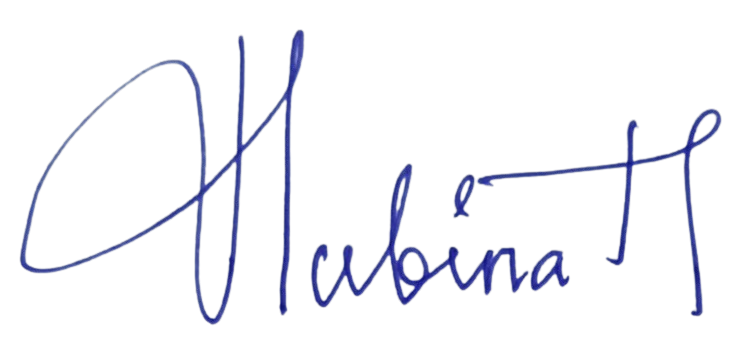 Habina H